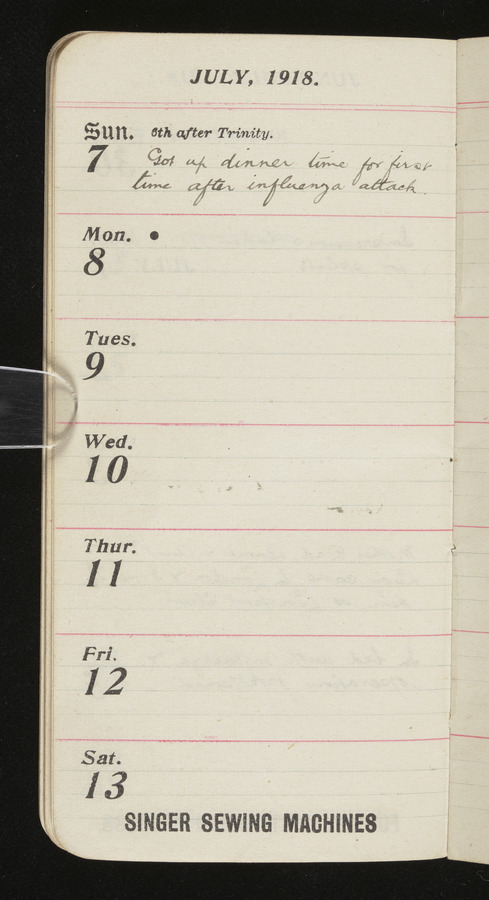 JULY, 1918.
Sun. 6th after Trinity.
7 Got up dinner time for first
time after influenza attack.
Mon.
8
Tues.
9
Wed.
10
Thur.
11
Fri.
12
Sat.
13
SINGER SEWING MACHINES